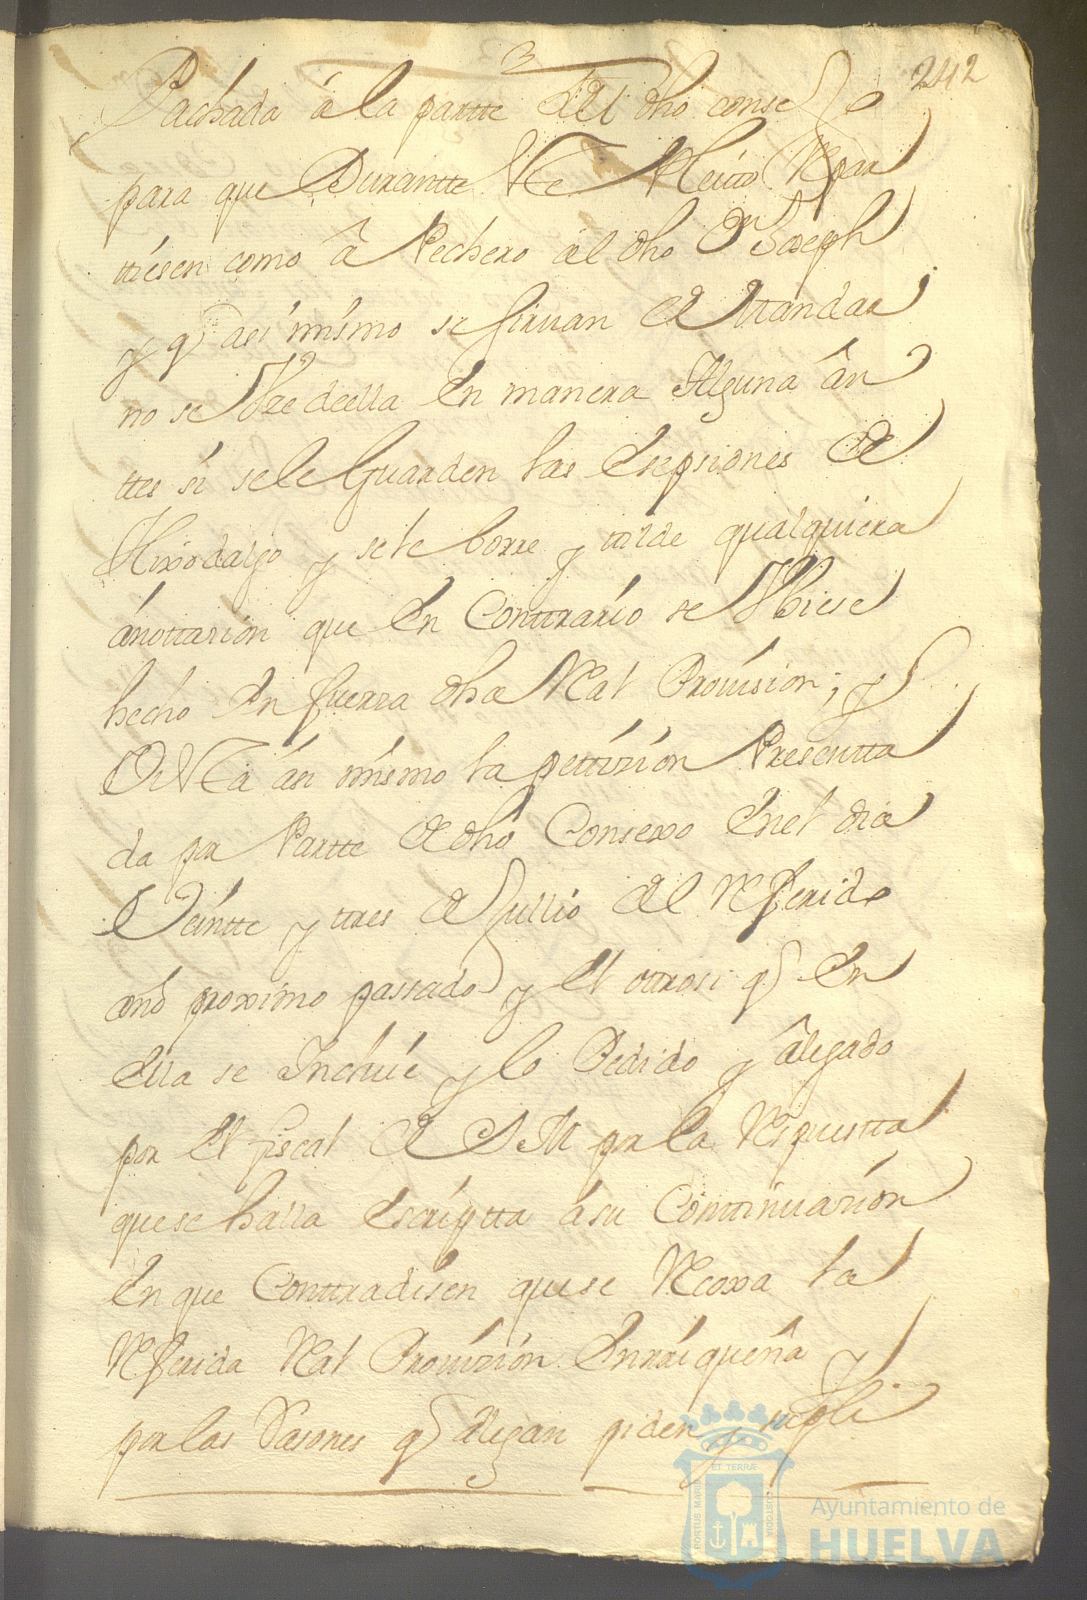 3
242
Pachada á la partte del dho conse
para que Durantte este Pleito Repar
ttiesen como â Pechero al dho Dn Joseph
y q asi mismo se sirvan de Mandar
no se Vse de ella En manera Alguna ân
ttes si se le Guarden las Esepsiones de
Hixodalgo y se le borre y tilde qualquiera
ánottazion que En Conttrario se Vbiese
hecho En fuerza dha Real Provision; y
Vista ási mismo la pettizion Presentta
da por Partte de dho Consexo En el dia
Veintte y ttres de Jullio del Referido
año proximo passado y el ottrosi q En
Ella se Incluie y lo Pedido y alegado
por El fiscal de S M por la Respuestta
que se halla Escriptta á su Conttinuazion
En que Conttradisen que se Recoxa la
Referida Real Provizion Enrriqueña y
por las Rasones q Alegan piden y supli
PORTUS MARIS
ET TERRÆ
CUSTODIA
Ayuntamiento de
HUELVA